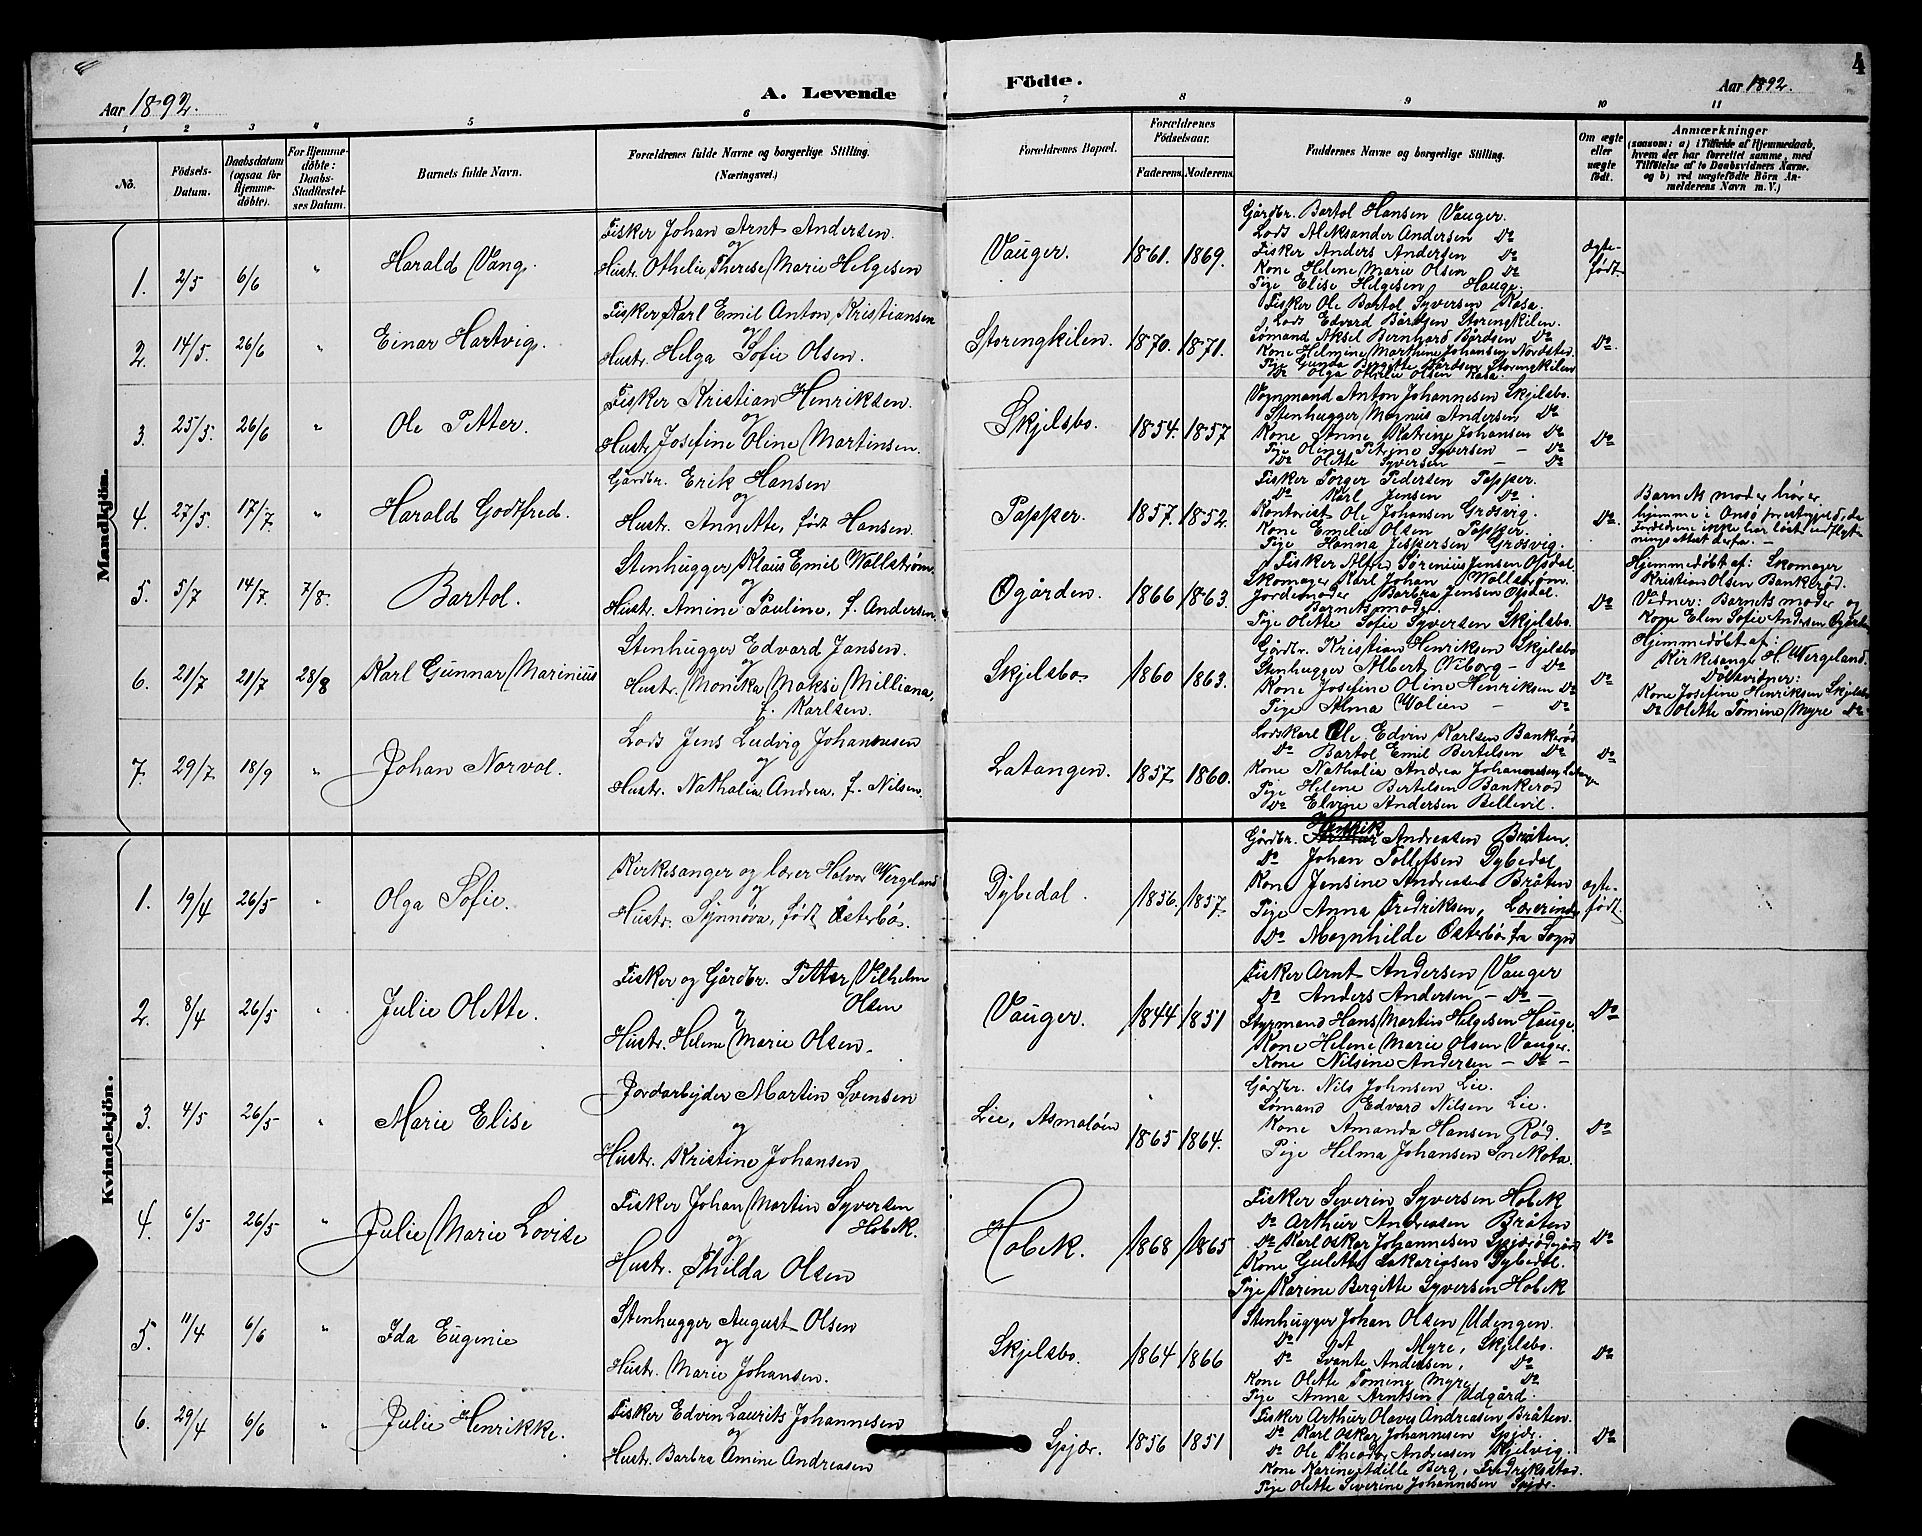 4
Aar 1892.
A. Levende
Födte.
Aar 1892.
1 2 3 4 5 6 7 8 9 10 11
No.
Födsels-Datum.
Daabsdatum (ogsaa for Hjemmedöbte).
For Hjemmedöbte: Daabs-Stadfæstelses Datum.
Barnets fulde Navn.
Forældrenes fulde Navne og borgerlige Stilling.
(Næringsvei.)
Forældrenes Bopæl.
Forældrenes Födselsaar.
Faderens. Moderens.
Faddernes Navne og borgerlige Stilling.
Om ægte eller uægte födt.
Anmærkninger
(saasom: a) i Tilfælde af Hjemmedaab,
hvem der har forrettet samme, med
Tilföielse af to Daabsvidners Navne.
og b) ved uægtefödte Börn An-
melderens Navn m. V.)
Mandkjön.
1. 2/5 6/6 " Harald Vang.
Fisker Johan Arnt Andersen
og
Hustr. Othelie Therese Marie Helgesen
Vauger. 1861. 1869.
Gårdbr. Bartol Hansen Vauger.
Lods Aleksander Andersen Do
Fisker Anders Andersen Do
Kone Helene Marie Olsen Do
Pige Elise Helgesen Hauge.
ægte-
født
2. 14/5. 26/6 " Einar Hartvig.
Fisker Karl Emil Anton Kristiansen
og
Hustr. Helga Sofie Olsen.
Storengkilen. 1870. 1871.
Fisker Ole Bartol Syversen Rasa.
Lods Edvard Bårdsen Storengkilen.
Sømand Aksel Bernhard Bårdsen Do
Kone Helmine Marthine Johansen Nordstød.
Pige Gunda Bergitte Bårdsen Storengkilen
Do Olga Othelie Olsen Rasa.
Do.
3. 25/5. 26/6 " Ole Petter.
Fisker Kristian Henriksen.
og
Hustr. Josefine Oline Martinsen.
Skjelsbo. 1854. 1857
Vognmand Anton Johannesen Skjelsbo.
Stenhugger Magnus Andersen Do
Kone Anne Katrine Johansen Do
Pige Oline Petrine Syversen — Do
Do Olette Syversen — Do
Do
4. 27/5. 17/7 " Harald Godtfred.
Gårdbr. Erik Hansen
og
Hustr. Annette, født Hansen.
Papper. 1857. 1852.
Fisker Torger Pedersen Papper.
Do Karl Jensen Do.
Kontorist Ole Johansen Gråsvig.
Kone Emelie Olsen Papper.
Pige Hanna Jespersen Gråsvig.
Do.
Barnets moder hører
hjemme i Onsø præstegjeld, da
Forældrene ikke har løst udflyt-
ningsattest derfra. —
5. 5/7 14/7. 7/8. Bartol.
Stenhugger Klaus Emil Wallstrøm.
og
Hustr. Amine Pauline, f. Andersen
Øgården. 1866 1863.
Fisker Alfred Sørenius Jensen Opdal.
Skomager Karl Johan Wallstrøm.
Jordemoder Barbra Jensen Opdal.
Barnets moder.
Pige Olette Sofie Syversen Skjelsbo.
Do
Hjemmedøbt af: Skomager
Kristian Olsen Bankerød.
Vidner: Barnets moder og
Kone Elen Sofie Andersen Øgården
6. 21/7 21/7 28/8 Karl Gunnar Marinius
Stenhugger Edvard Jansen.
og
Hustr. Monika Maksi Milliana,
f. Karlsen.
Skjelsbo 1860 1863.
Gårdbr. Kristian Henriksen Skjelsbo
Stenhugger Albert Wiborg — Do
Kone Josefine Oline Henriksen Do
Pige Alma Wolien — Do
Do
Hjemmedøbt af:
Kirkesanger H. Wergeland.
Dåbsvidner:
Kone Josefine Henriksen Skjelsbo
Do Olette Tomine Myre Do
7. 29/7 18/9 " Johan Norval.
Lods Jens Ludvig Johannesen
og
Hustr. Nathalia Andrea, f. Nilsen.
Latangen. 1857 1860.
Lodskarl Ole Edvin Karlsen Bankerød
Do Bartol Emil Bertelsen Do
Kone Nathalia Andrea Johannesen, Latangen
Pige Helene Bertelsen Bankerød
Do Elvine Andersen Bellevil.
Do
Kvindekjön.
1. 19/4 26/5 " Olga Sofie.
Kirkesanger og lærer Halvor Wergeland
og
Hustr. Synnøva, født Østerbø.
Dybedal. 1856. 1857.
Henrik
Gårdbr. Andreasen Bråten.
Do Johan Tollefsen Dybedal
Kone Jensine Andreasen Bråten
Pige Anna Fredriksen, Lærerinde
Do Magnhilde Østerbø fra Sogn
ægte-
født
2. 8/4 26/5 " Julie Olette.
Fisker og Gårdbr. Petter Vilhelm
Olsen
og
Hustr. Helene Marie Olsen.
Vauger. 1844 1851
Fisker Arnt Andersen Vauger
Do Anders Andersen — Do —
Styrmand Hans Martin Helgesen Hauge.
Kone Helene Marie Olsen Vauger.
Kone Nilsine Andersen — Do —
Do
3. 4/5 26/5 " Marie Elise
Jordarbejder Martin Svensen
og
Hustr. Kristine Johansen
Lie, Asmaløen 1865 1864.
Gårdbr. Nils Johnsen Lie.
Sømand Edvard Nilsen Lie.
Kone Amanda Hansen Rød.
Pige Helma Johansen Snekota.
Do
4. 6/5 26/5 " Julie Marie Lovise
Fisker Johan Martin Syversen
Hobek.
og
Hustr. Thilda Olsen
Hobek. 1868 1865
Fisker Severin Syversen Hobek
Do Arthur Andreasen Bråten
Do Karl Oskar Johannesen Spjærødegård
Kone Gulette Sakariasen Dybedal.
Pige Karine Bergitte Syversen Hobek
Do
5. 11/4 6/6 " Ida Eugenie
Stenhugger August Olsen
og
Hustr. Marie Johansen.
Skjelsbo. 1864 1866
Stenhugger Johan Olsen Udengen.
Do Myre, Skjelsbo.
Do Svante Andersen, Do
Kone Olette Tomine Myre, Do
Pige Anna Arntsen, Udgård.
Do
6. 29/4 6/6 " Julie Henrikke.
Fisker Edvin Laurits Johannesen
og
Hustr. Barbra Amine Andreasen
Spjær. 1856 1851
Fisker Arthur Olaves Andreasen Bråten.
Do Karl Oskar Johannesen Spjær.
Do Ole Theodor Andreasen Kjelvig.
Kone Karine Adille Berg, Fredriksstad.
Pige Olette Severine Johannesen Spjær.
Do